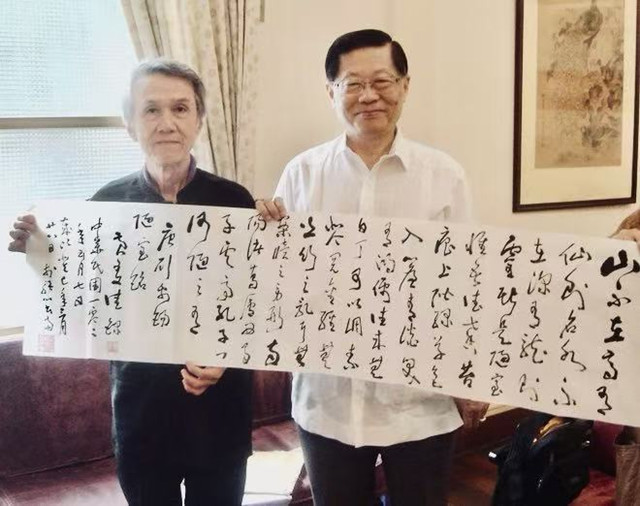 山不在高有
仙則名水不
在深有龍則
靈斯是陋室
惟吾德馨苔
痕上階綠草色
入簾青談笑
有鴻儒往來無
白丁可以調素
琴閱金經無
絲竹之亂耳無
案牘之勞形南
陽諸葛廬西蜀
子雲亭孔子曰
何陋之有
唐劉禹錫
陋室銘
中華民國一零二
年五月七日
歲次癸巳年三月
廿八日